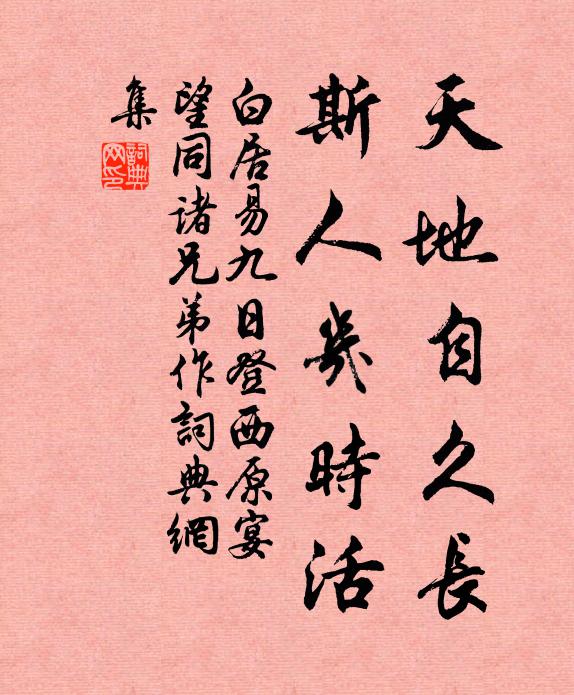 天地自久長
斯人幾時活
白居易九日登西原宴
望同諸兄弟作詞典網
集
詞典
网印